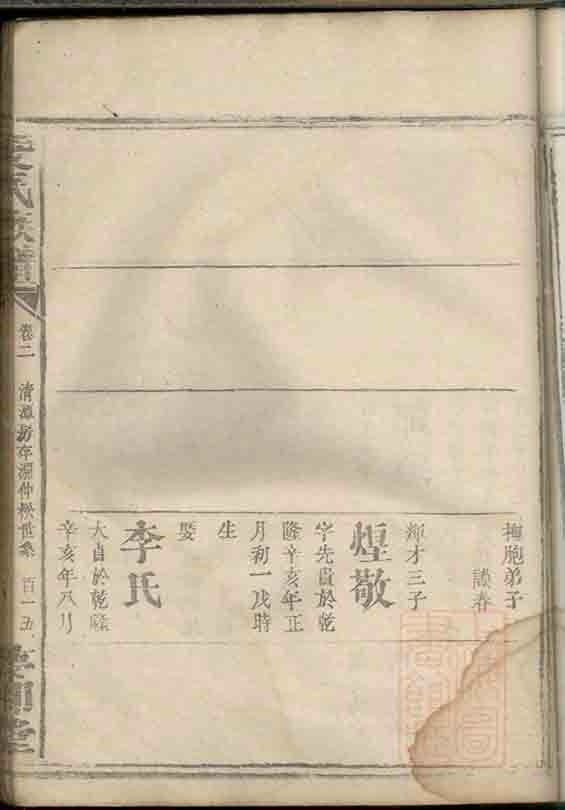 撫胞弟子
談春
輝才三子
煌敬
字先貴於乾
隆辛亥年正
月初一戊時
生
娶
李氏
大自於乾隆
辛亥年八月
氏族譜
卷二
清潭房存淵仲松世系
百一五
堂